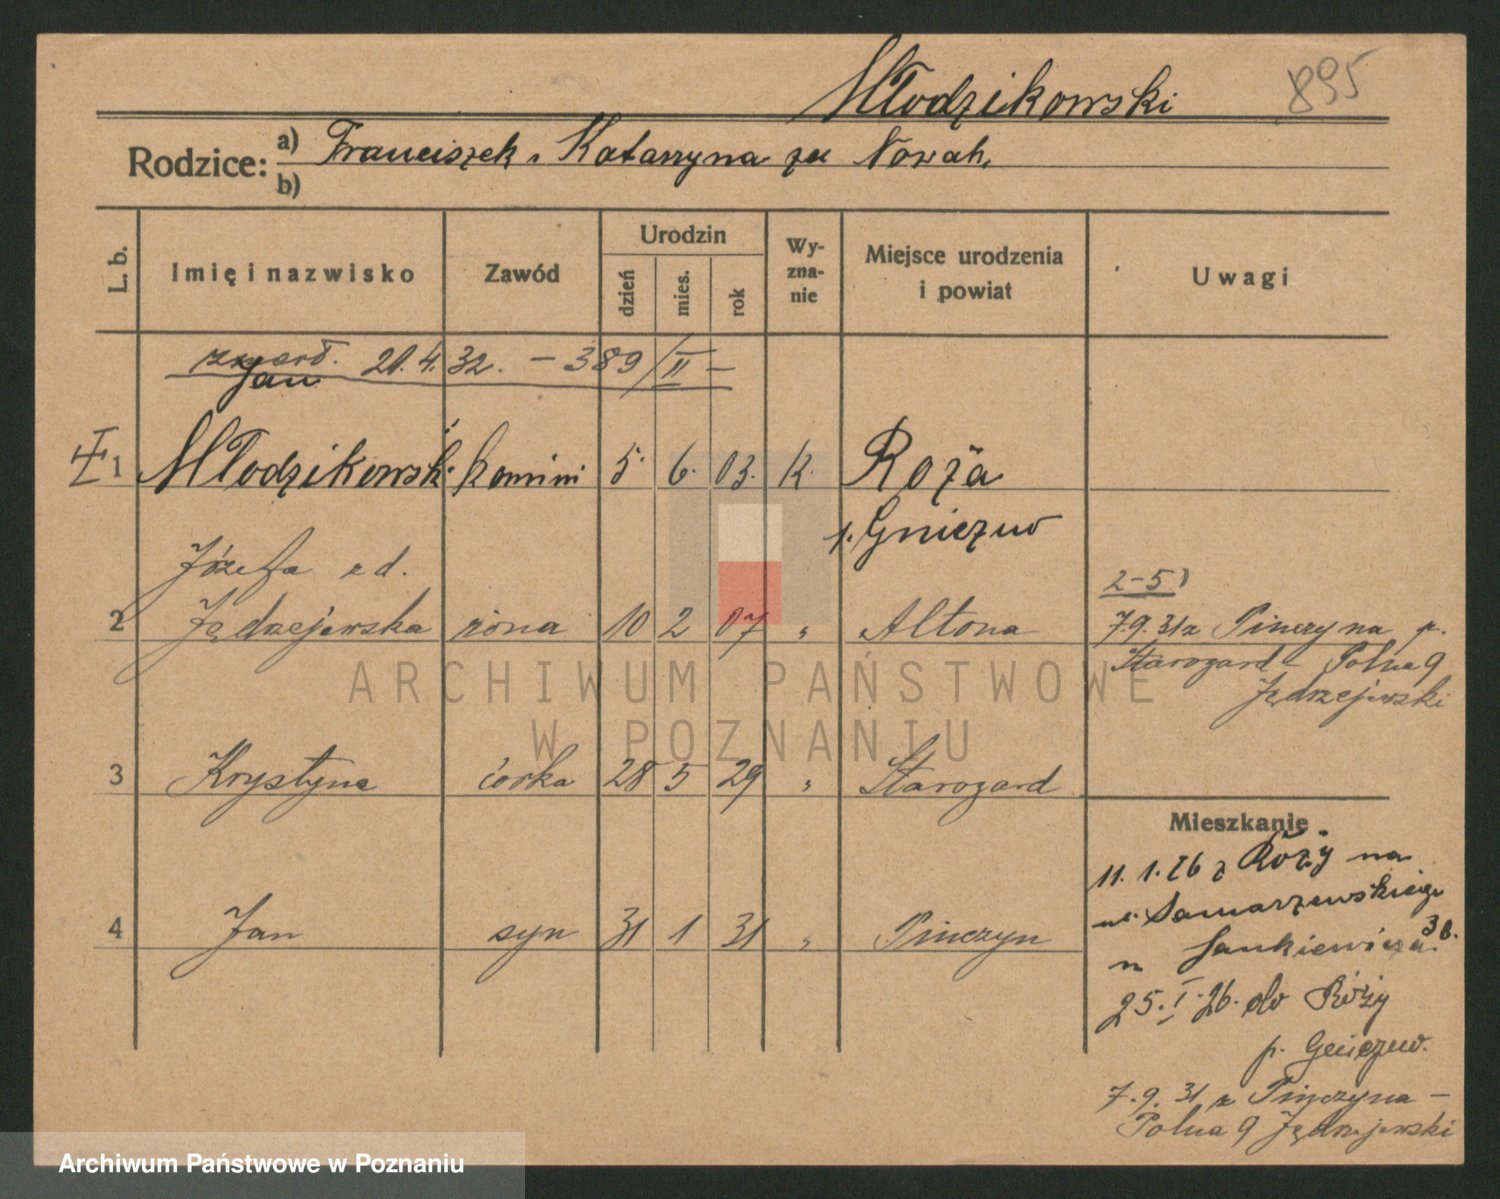 Młodzikowski 895
Rodzice: a) Franciszek, Katarzyna zd Nowak,
b)
L. b. Imię i nazwisko Zawód Urodzin dzień mies. rok Wyzna-nie Miejsce urodzenia i powiat Uwagi
20.4.32. – 389/II –
Jan
1 Młodzikowski komini 5. 6. 03. K. Roża
Gniezno
Józefa zd.
2–5)
2 Jędrzejewska żona 10 2 07 „ Altona 7.9.31 z Pinczyna p.
Starogard – Polna 9
Jędrzejewski
ARCHIWUM PAŃSTWOWE
W POZNANIU
3 Krystyna córka 28 5 29 „ Starogard
Mieszkanie
11.1.26 z Róży na
ul. Samarzewskiego
36.
4 Jan syn 31 1 31 „ Pinczyn
n Jankiewicza
25.I.26. do Róży
p. Gniezno.
7.9.31 z Pinczyna –
Polna 9 Jędrzejewski
Archiwum Państwowe w Poznaniu